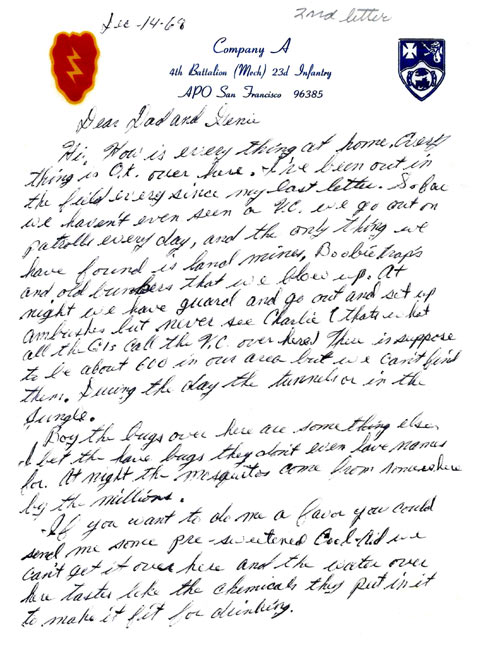 Dec -14-68
2nd letter
Company A
4th Battalion (Mech) 23d Infantry
APO San Francisco 96385
Dear Dad and Genie
Hi, How is every thing at home. Every
thing is O.K. over here. I've been out in
the field every since my last letter. So far
we haven't even seen a V.C. we go out on
patrolls every day, and the only thing we
have found is land mines, Boobie traps
and old bunkers that we blow up. At
night we have guard and go out and set up
ambushes but never see Charlie (thats what
all the GIs call the V.C. over here) Ther is suppose
to be about 600 in our area but we can't find
them. During the day the tunnels or in the
Jungle.
Boy the bugs over here are something else
I bet the have bugs they don't even have names
for. At night the mesquitos come from somewhere
by the millions.
If you want to do me a favor you could
send me some pre-sweetened Cool-Aid we
can't get it over here and the water over
here tastes like the chemicals they put in it
to make it fit for drinking.